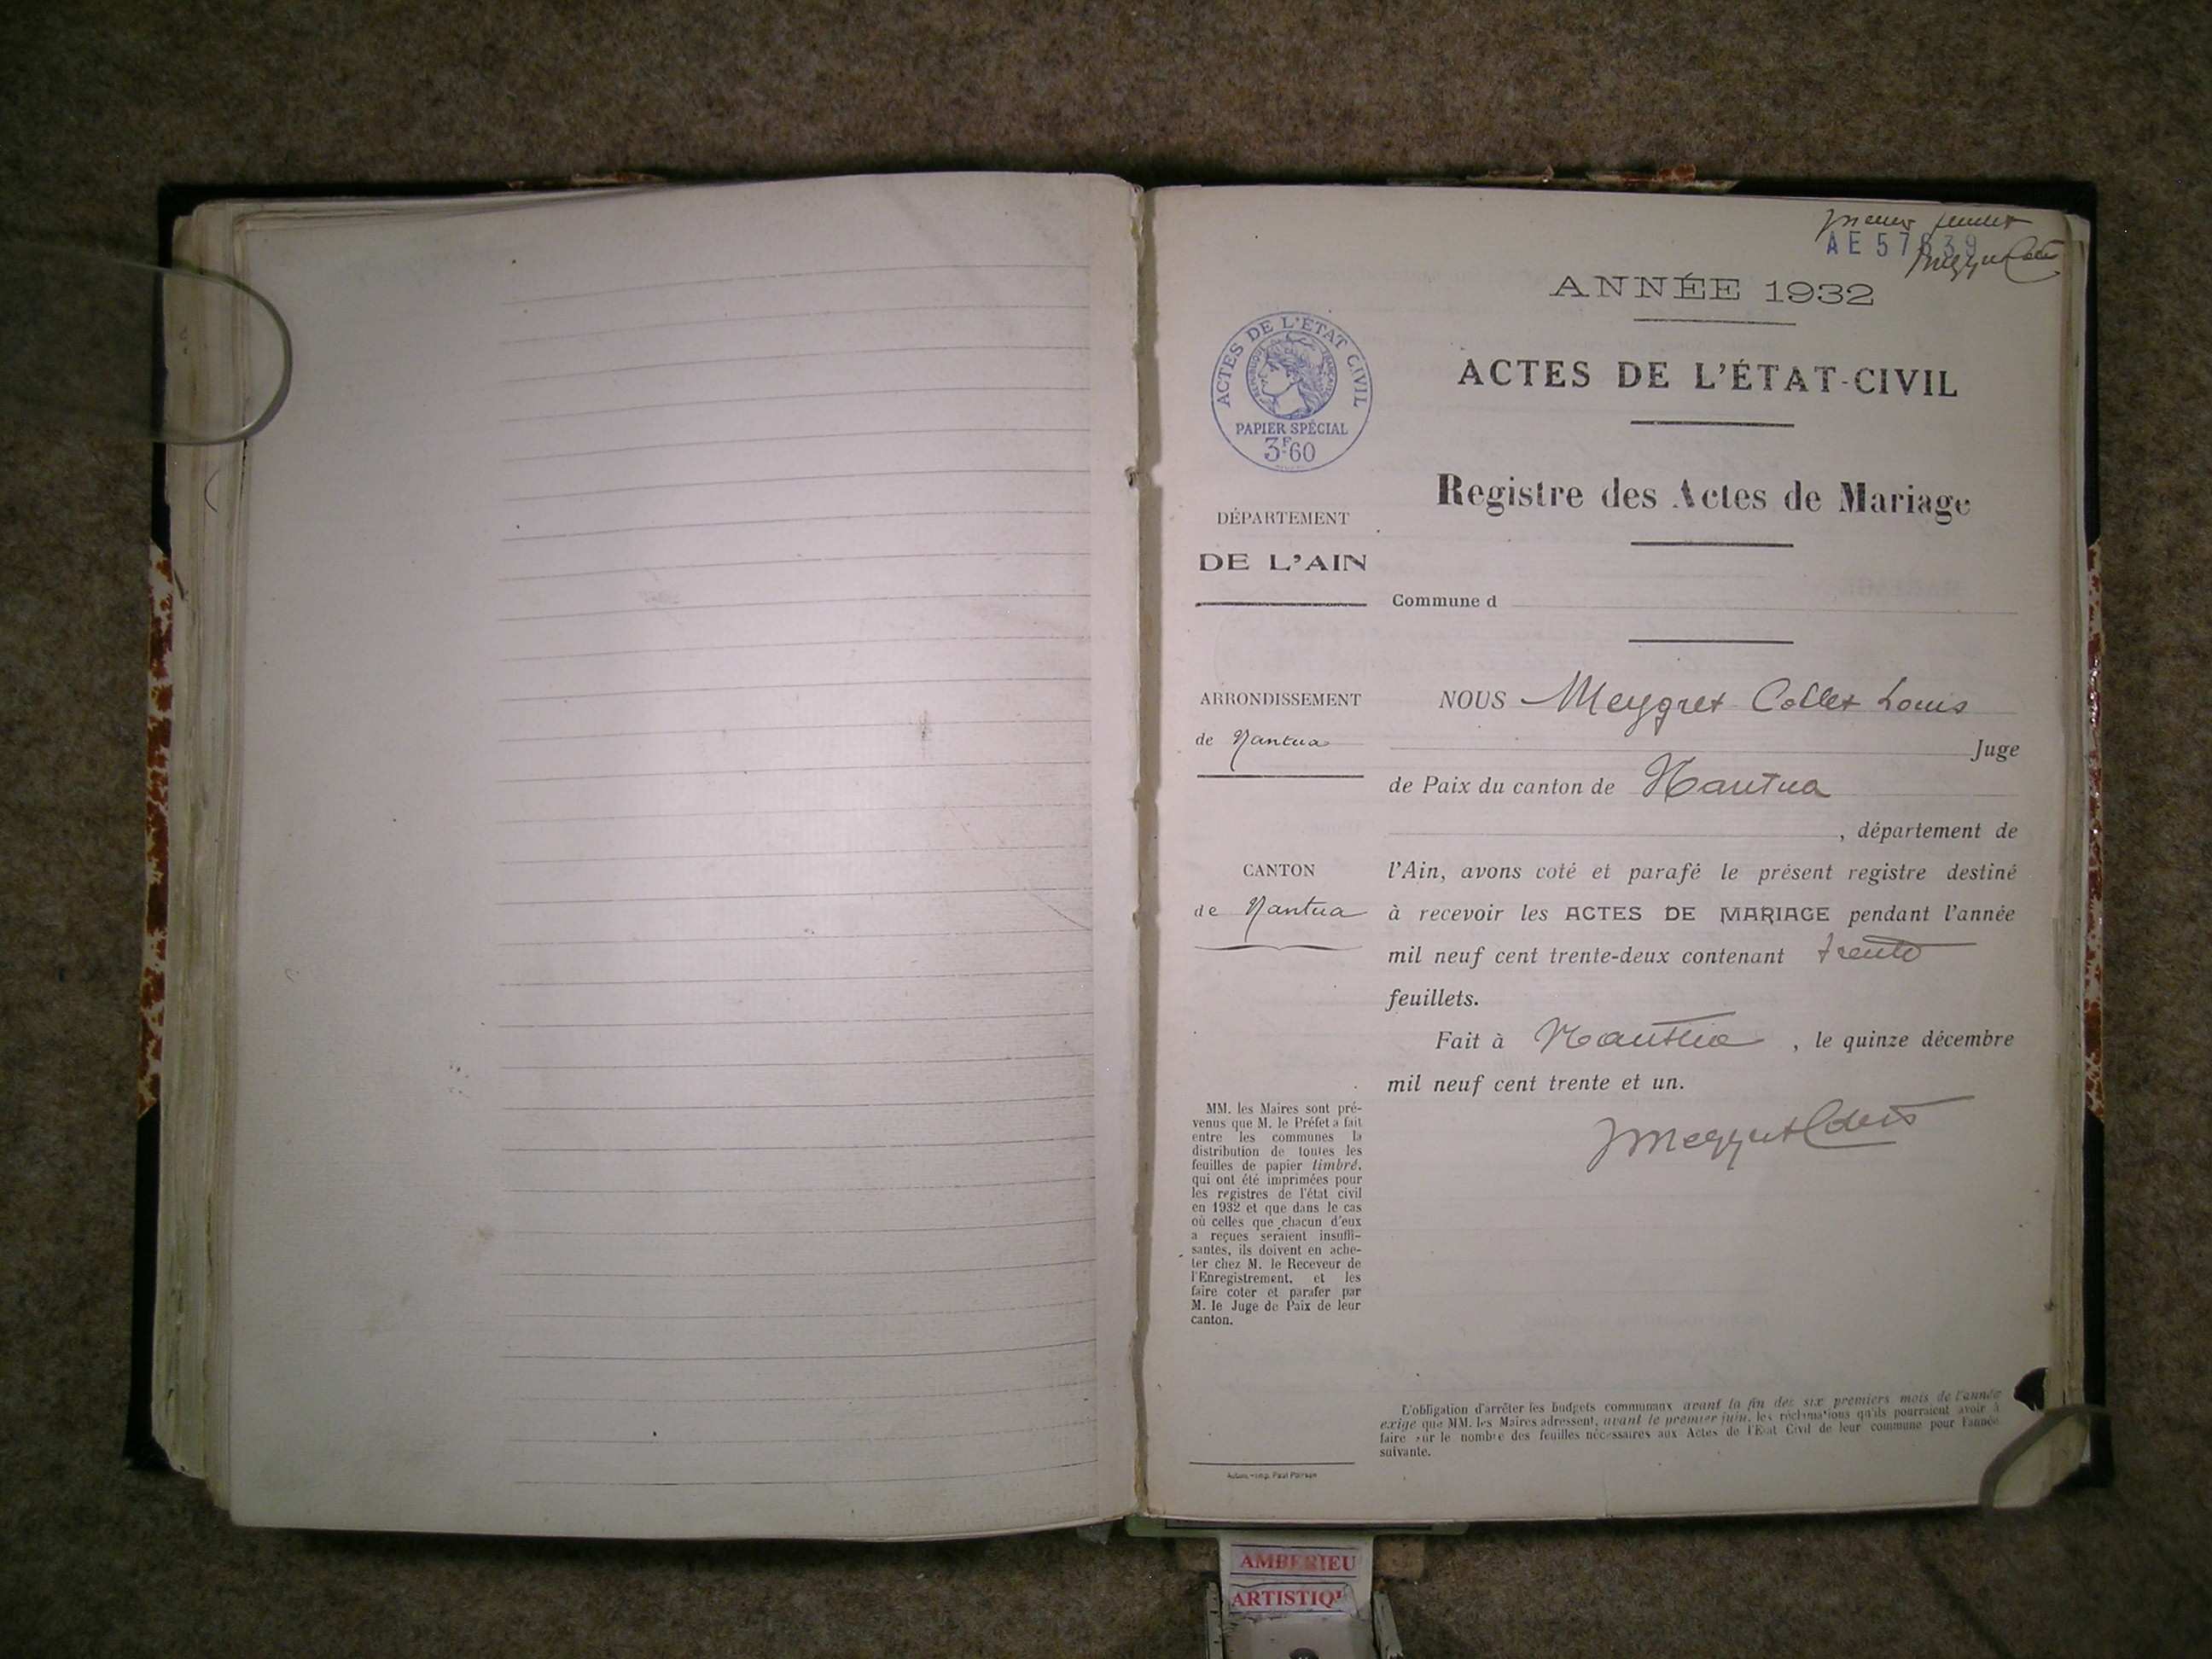 AE 57639
ANNÉE 1932
ACTES DE L'ÉTAT CIVIL
RÉPUBLIQUE FRANÇAISE
PAPIER SPÉCIAL
3F60
ACTES DE L'ÉTAT-CIVIL
Registre des Actes de Mariage
DÉPARTEMENT
DE L'AIN
Commune d
ARRONDISSEMENT
de Nantua
CANTON
de Nantua
NOUS Meygret Collet Louis
Juge
de Paix du canton de Nantua
, département de
l'Ain, avons coté et parafé le présent registre destiné
à recevoir les ACTES DE MARIAGE pendant l'année
mil neuf cent trente-deux contenant trente
feuillets.
Fait à Nantua , le quinze décembre
mil neuf cent trente et un.
MM. les Maires sont pré-
venus que M. le Préfet a fait
entre les communes la
distribution de toutes les
feuilles de papier timbré,
qui ont été imprimées pour
les registres de l'état civil
en 1932 et que dans le cas
où celles que chacun d'eux
a reçues seraient insuffi-
santes, ils doivent en ache-
ter chez M. le Receveur de
l'Enregistrement, et les
faire coter et parafer par
M. le Juge de Paix de leur
canton.
L'obligation d'arrêter les budgets communaux avant la fin des six premiers mois de l'année
exige que MM. les Maires adressent, avant le premier juin, les réclamations qu'ils pourraient avoir à
faire sur le nombre des feuilles nécessaires aux Actes de l'Etat Civil de leur commune pour l'année
suivante.
AMBERIEU
ARTISTIQU